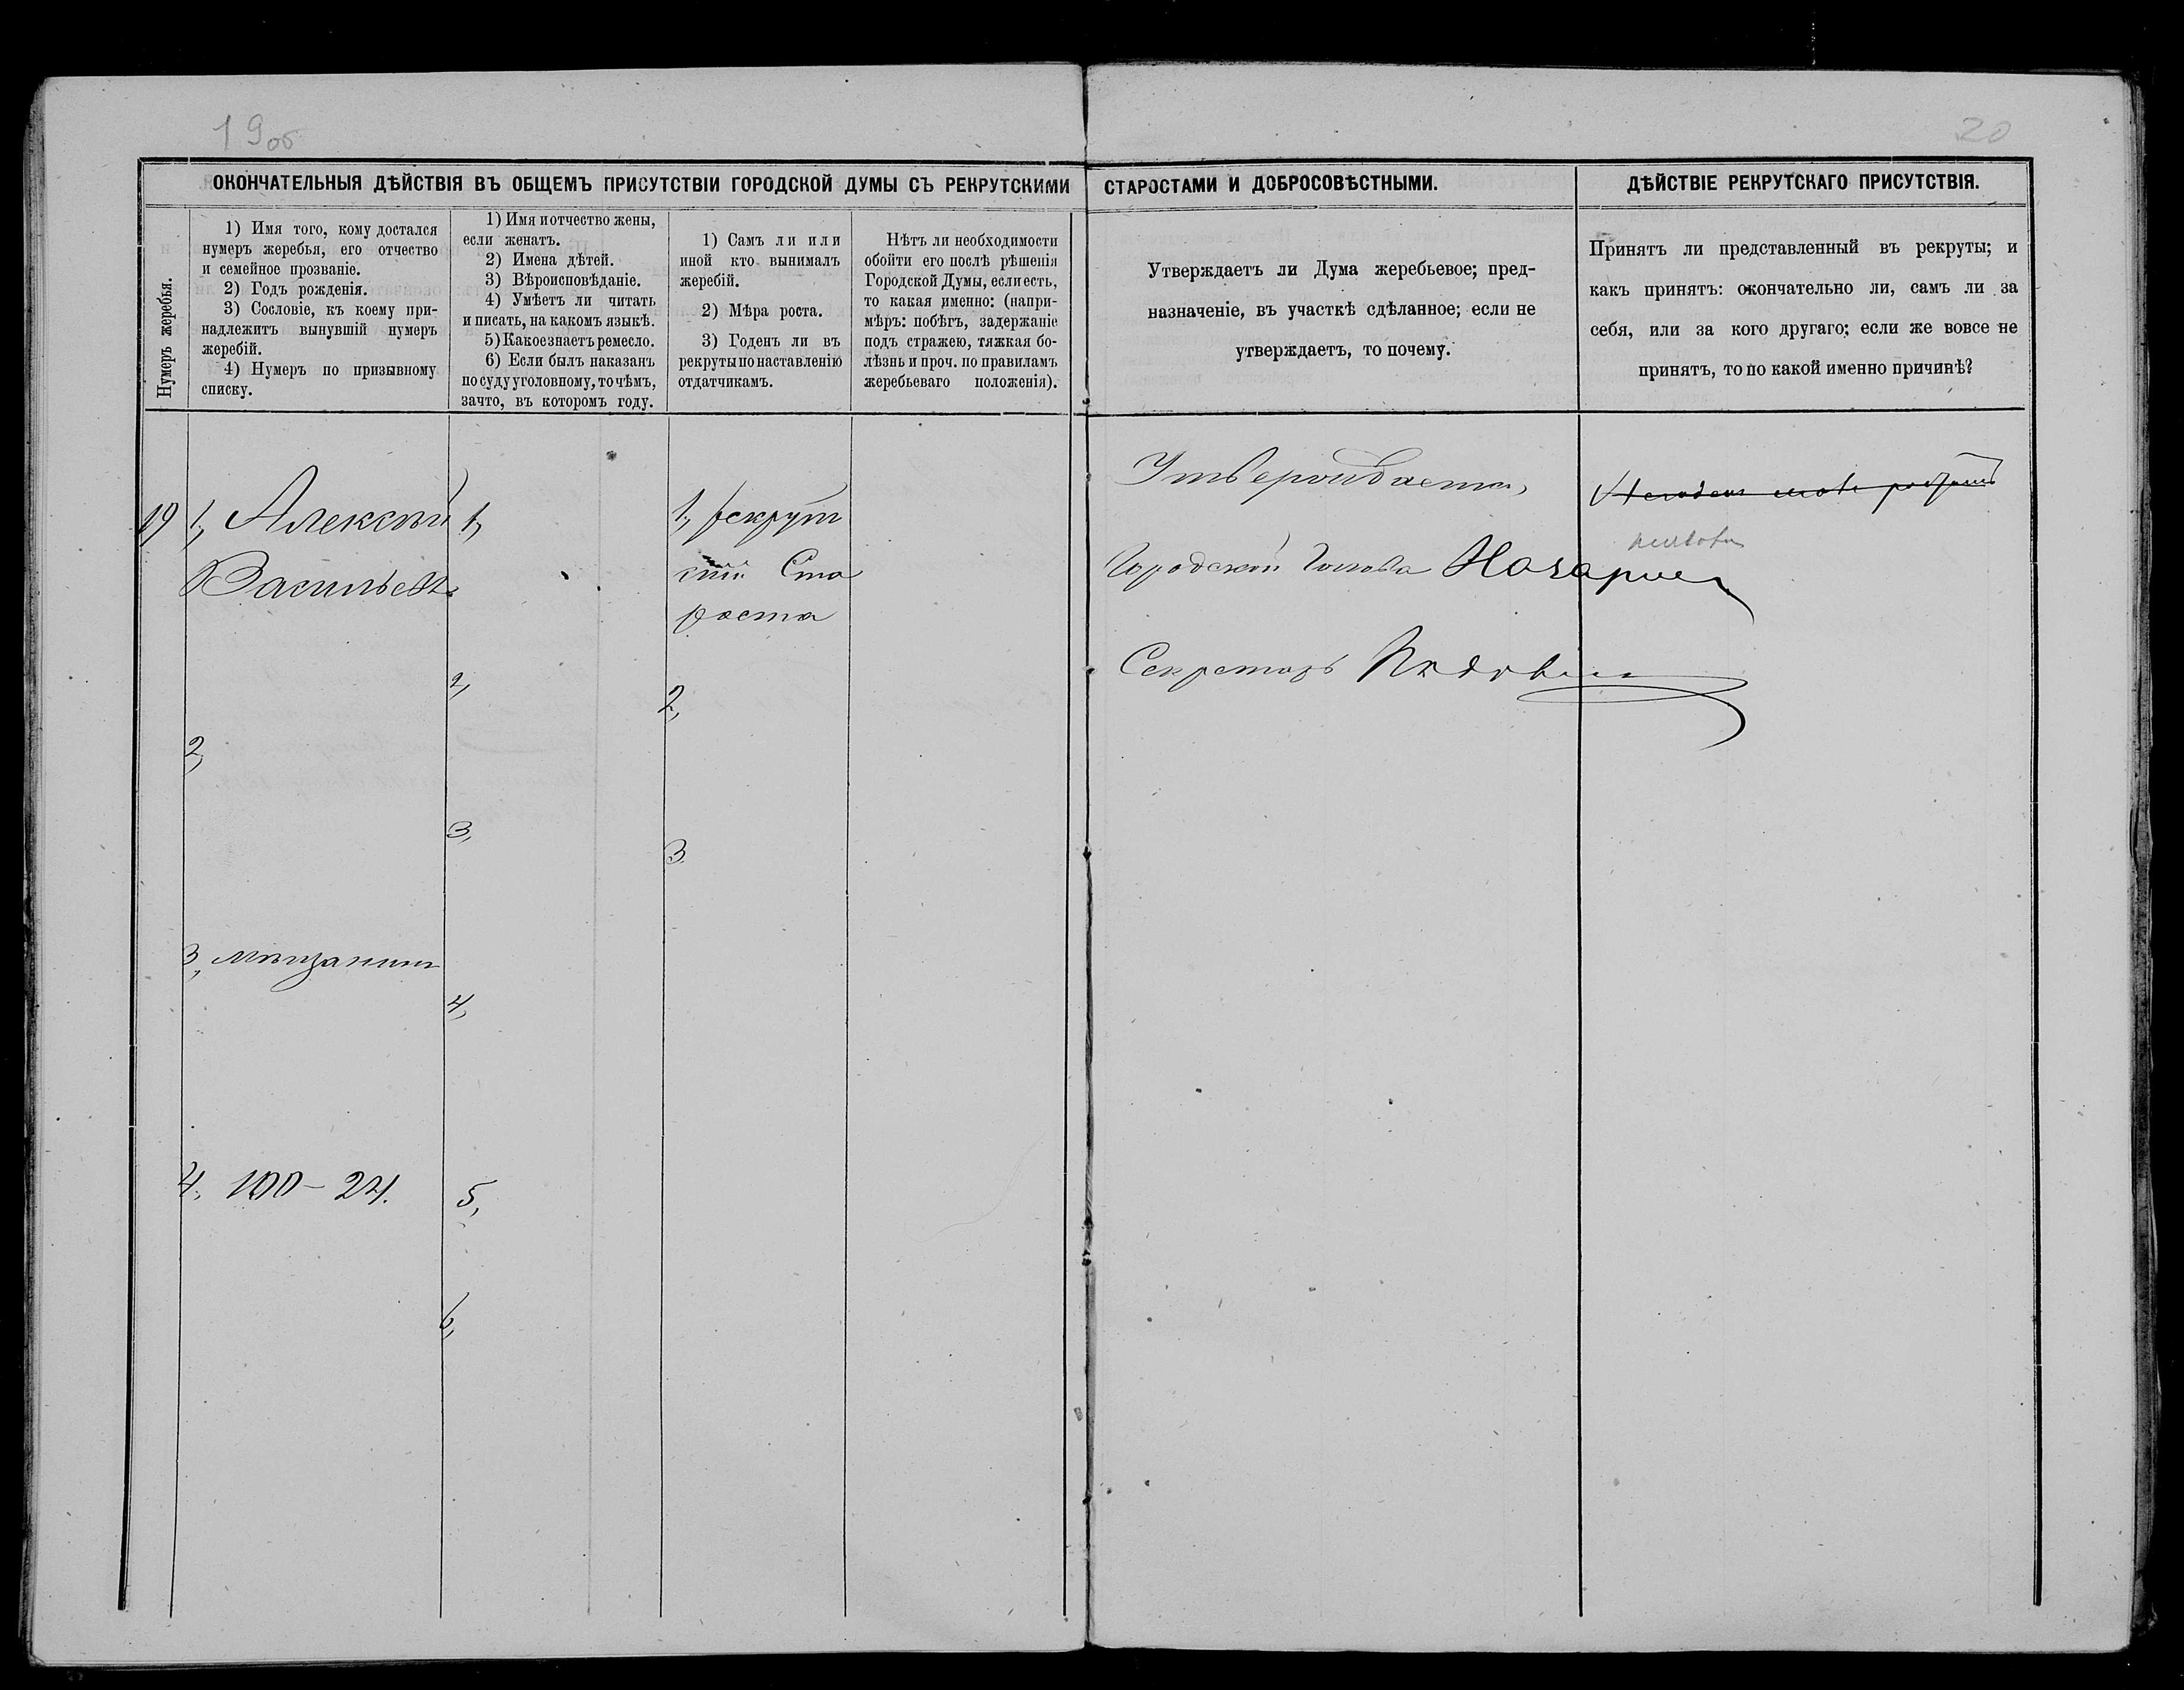 19об
20
ОКОНЧАТЕЛЬНЫЯ ДѢЙСТВІЯ ВЪ ОБЩЕМЪ ПРИСУТСТВІИ ГОРОДСКОЙ ДУМЫ СЪ РЕКРУТСКИМИ СТАРОСТАМИ И ДОБРОСОВѢСТНЫМИ.
ДѢЙСТВІЕ РЕКРУТСКАГО ПРИСУТСТВІЯ.
Нумеръ жеребья.
1) Имя того, кому достался
нумеръ жеребья, его отчество
и семейное прозваніе.
2) Годъ рожденія.
3) Сословіе, къ коему при-
надлежитъ вынувшій нумеръ
жеребій.
4) Нумеръ по призывному
списку.
1) Имя и отчество жены,
если женатъ.
2) Имена дѣтей.
3) Вѣроисповѣданіе.
4) Умѣетъ ли читать
и писать, на какомъ языкѣ.
5) Какое знаетъ ремесло.
6) Если былъ наказанъ
по суду уголовному, то чѣмъ,
за что, въ которомъ году.
1) Самъ ли или
иной кто вынималъ
жеребій.
2) Мѣра роста.
3) Годенъ ли въ
рекруты по наставленію
отдатчикамъ.
Нѣтъ ли необходимости
обойти его послѣ рѣшенія
Городской Думы, если есть,
то какая именно: (напри-
мѣръ: побѣгъ, задержаніе
подъ стражею, тяжкая бо-
лѣзнь и проч. по правиламъ
жеребьеваго положенія).
Утверждаетъ ли Дума жеребьевое; пред-
назначеніе, въ участкѣ сдѣланное; если не
утверждаетъ, то почему.
Принятъ ли представленный въ рекруты; и
какъ принятъ: окончательно ли, самъ ли за
себя, или за кого другаго; если же вовсе не
принятъ, то по какой именно причинѣ?
19
1, Алексѣй
Васильевъ
2,
3, мѣщанинъ
4, 100-24.
1,
2,
3,
4,
5,
6,
1, рекрут
скій Ста
роста
2,
3
Утверждаетъ
Городской Голова
Секретарь